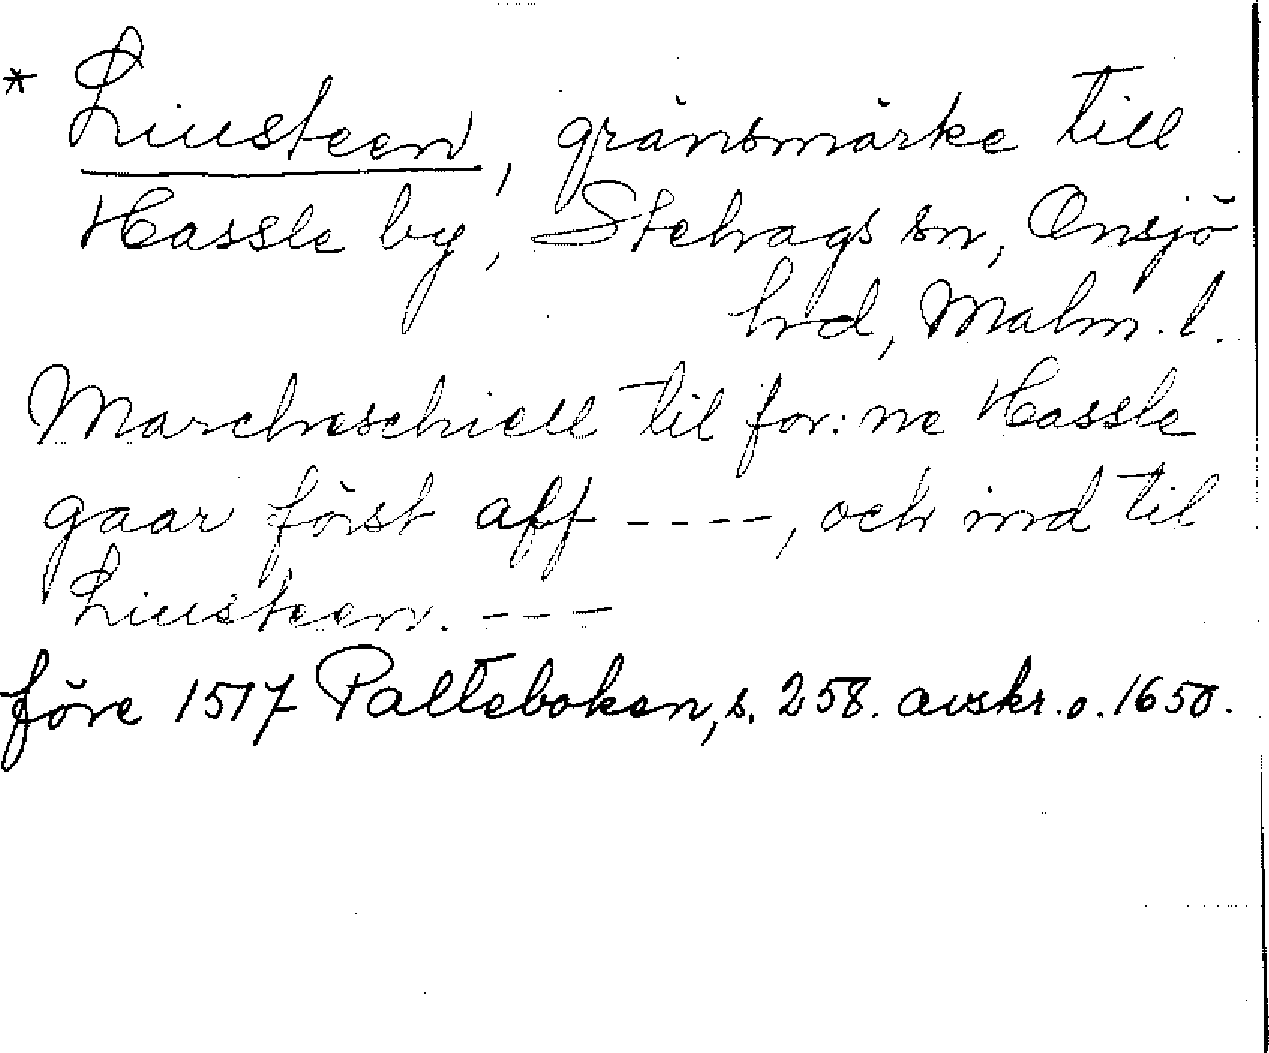 * Liusteen, gränsmärke till
Hassle by, Stehags sn, Onsjö
hrd, Malm. l.
Marcheschiell til for:ne Hassle
gaar först aff ----, och ind til
Liusteen. ---
före 1517 Palteboken, s. 258. avskr. o. 1650.